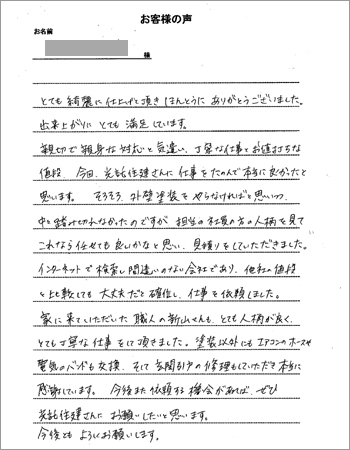 お客様の声
お名前
様
とても綺麗に仕上げて頂きほんとうにありがとうございました。
出来上がりにとても満足しています。
親切で親身な対応と気遣い、丁寧な仕事とお値打ちな
値段 今回、光託住建さんに仕事をたのんで本当に良かったと
思います。 そろそろ、外壁塗装をやらなければと思いつつ、
中々踏み切れなかったのですが、担当の社員の方の人柄を見て
これなら任せても良いかなと思い、見積りをしていただきました。
インターネットで検索し間違いのない会社であり、他社の値段
と比較しても大丈夫だと確信し、仕事を依頼しました。
家に来ていただいた職人の新山くんも、とても人柄が良く、
とても丁寧な仕事をして頂きました。塗装以外にもエアコンのホースや
電気のバンドも交換、そして玄関引戸の修理もしていただき本当に
感謝しています。 今後また依頼する機会があれば、ぜひ
光託住建さんにお願いしたいと思います。
今後ともよろしくお願いします。